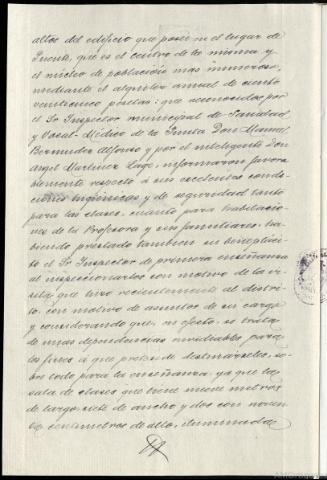 altos del edificio que posee en el lugar de
Puente, que es el centro de la misma y
el núcleo de población mas numeroso,
mediante el alquiler annual de ciento
venticinco pesetas; que reconocidos por
el Sr Inspector municipal de Sanidad
y Vocal-Médico de la Junta Don Manuel
Bermudez Alfonso y por el inteligente Don
Angel Martinez Lage, informaron favora
blemente respecto á sus excelentes condi
ciones higiénicas y de seguridad tanto
para las clases, cuanto para habitacio
nes de la Profesora y sus familiares, ha
biendo prestado tambien su beneplácito
el Sr Inspector de primera enseñanza
al inspeccionarlos con motivo de la vi
sita que hizo recientemente al distri
to, con motivo de asuntos de su cargo
y considerando que, en efecto, se trata
de unas dependencias envidiables para
los fines á que pretende destinarseles, so
bre todo para la enseñanza, ya que la
sala de clases que tiene nueve metros
de largo, siete de ancho y dos con noven
ta centimetros de alto, iluminada